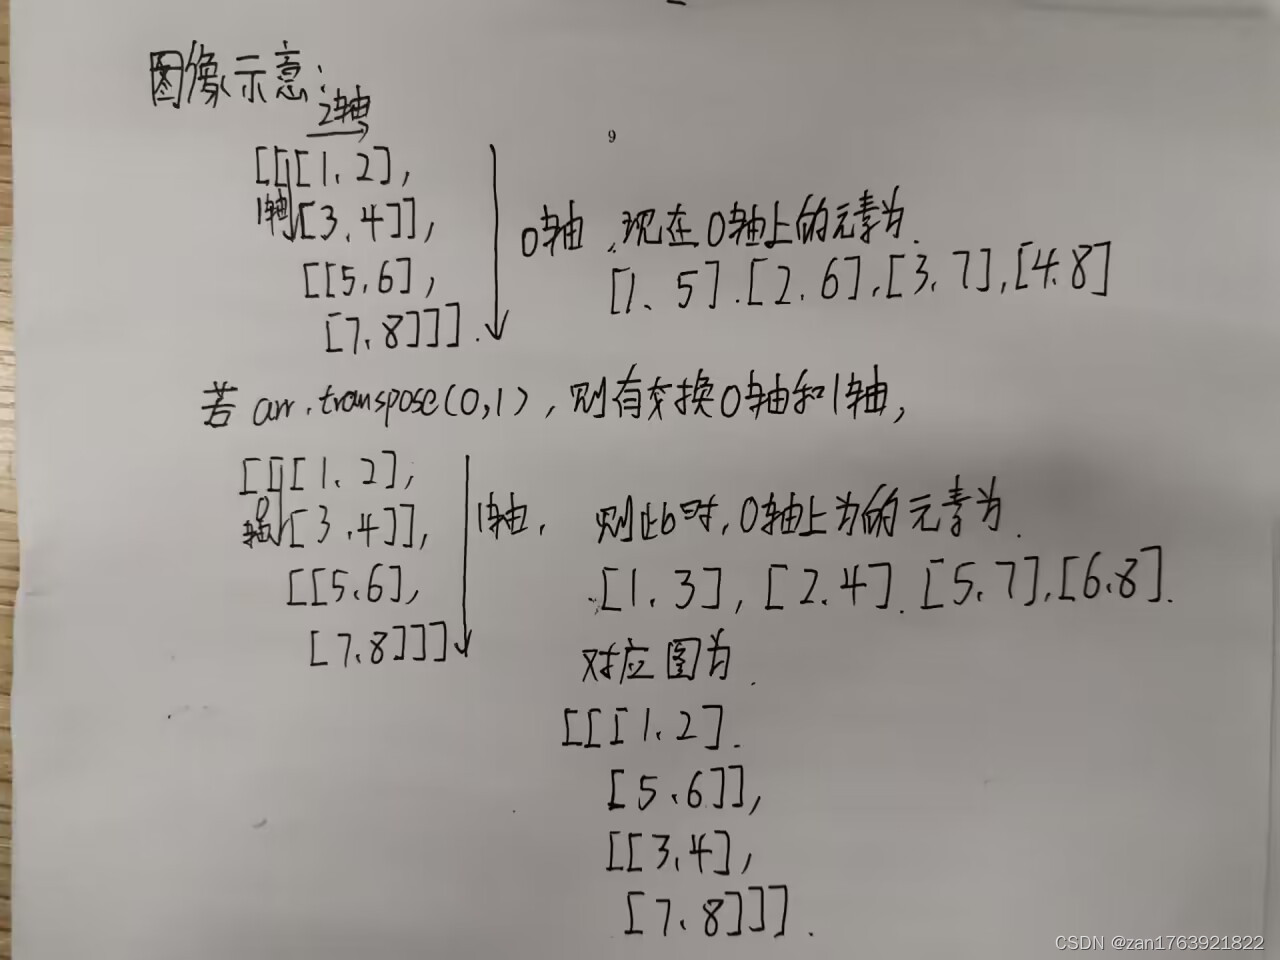 图像示意:
2轴
9
[[[1,2],
1轴 [3,4]],
0轴 .现在0轴上的元素为.
[[5,6],
[1、5].[2,6],[3,7],[4.8]
[7,8]]].
若 arr.transpose(0,1),则有交换0轴和1轴,
[[[1,2],
0轴 [3,4]],
1轴. 则此时,0轴上为的元素为.
[[5,6],
.[1,3],[2,4].[5,7],[6,8].
[7,8]]]
对应图为.
[[[1,2].
[5,6]],
[[3,4],
[7,8]]].
CSDN @zan1763921822